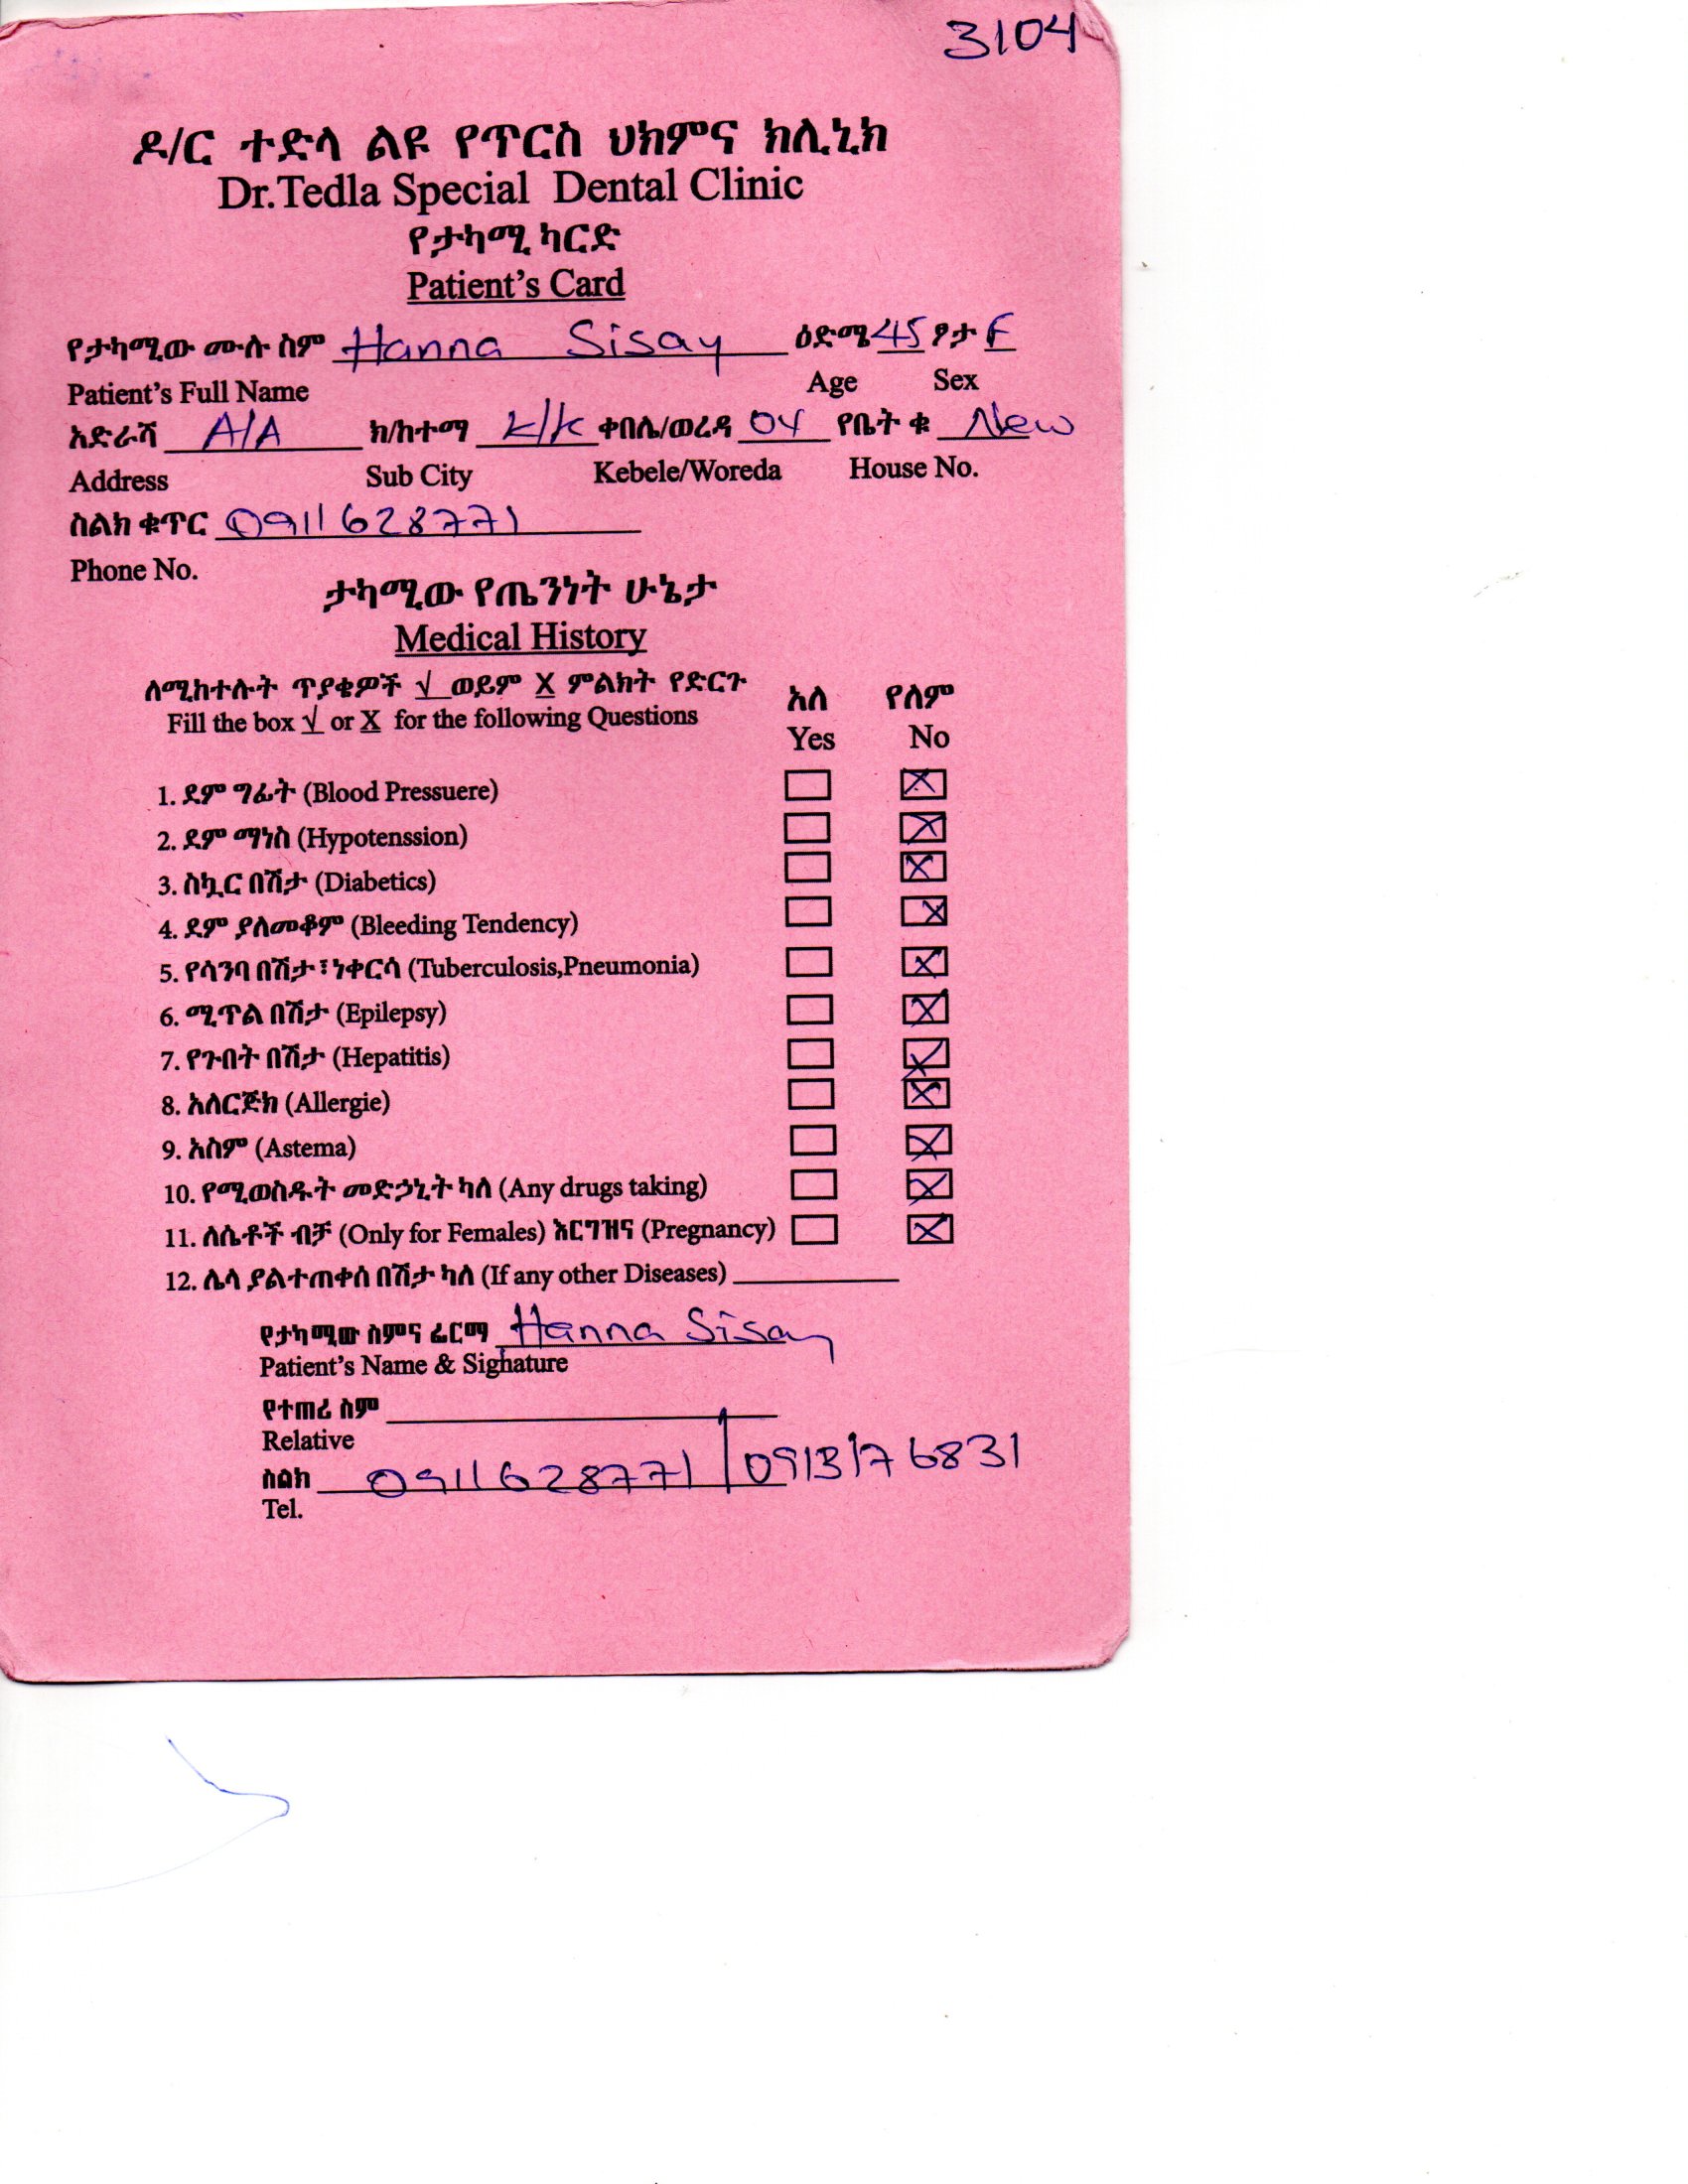 3104
ዶ/ር ተድላ ልዩ የጥርስ ህክምና ክሊኒክ
Dr.Tedla Special Dental Clinic
የታካሚ ካርድ
Patient's Card
የታካሚው ሙሉ ስም Hanna Sisay ዕድሜ 45 ፆታ F
Patient's Full Name Age Sex
አድራሻ A/A ክ/ከተማ k/k ቀበሌ/ወረዳ 04 የቤት ቁ New
Address Sub City Kebele/Woreda House No.
ስልክ ቁጥር 0911628771
Phone No.
ታካሚው የጤንነት ሁኔታ
Medical History
ለሚከተሉት ጥያቄዎች √ ወይም X ምልክት የድርጉ አለ የለም
Fill the box √ or X for the following Questions Yes No
1. ደም ግፊት (Blood Pressuere) X
2. ደም ማነስ (Hypotenssion) X
3. ስኳር በሽታ (Diabetics) X
4. ደም ያለመቆም (Bleeding Tendency) X
5. የሳንባ በሽታ፣ነቀርሳ (Tuberculosis,Pneumonia) X
6. ሚጥል በሽታ (Epilepsy) X
7. የጉበት በሽታ (Hepatitis) X
8. አለርጅክ (Allergie) X
9. አስም (Astema) X
10. የሚወስዱት መድኃኒት ካለ (Any drugs taking) X
11. ለሴቶች ብቻ (Only for Females) እርግዝና (Pregnancy) X
12. ሌላ ያልተጠቀሰ በሽታ ካለ (If any other Diseases)
የታካሚው ስምና ፊርማ Hanna Sisay
Patient's Name & Sighature
የተጠሪ ስም
Relative
ስልክ 0911628771/0913176831
Tel.